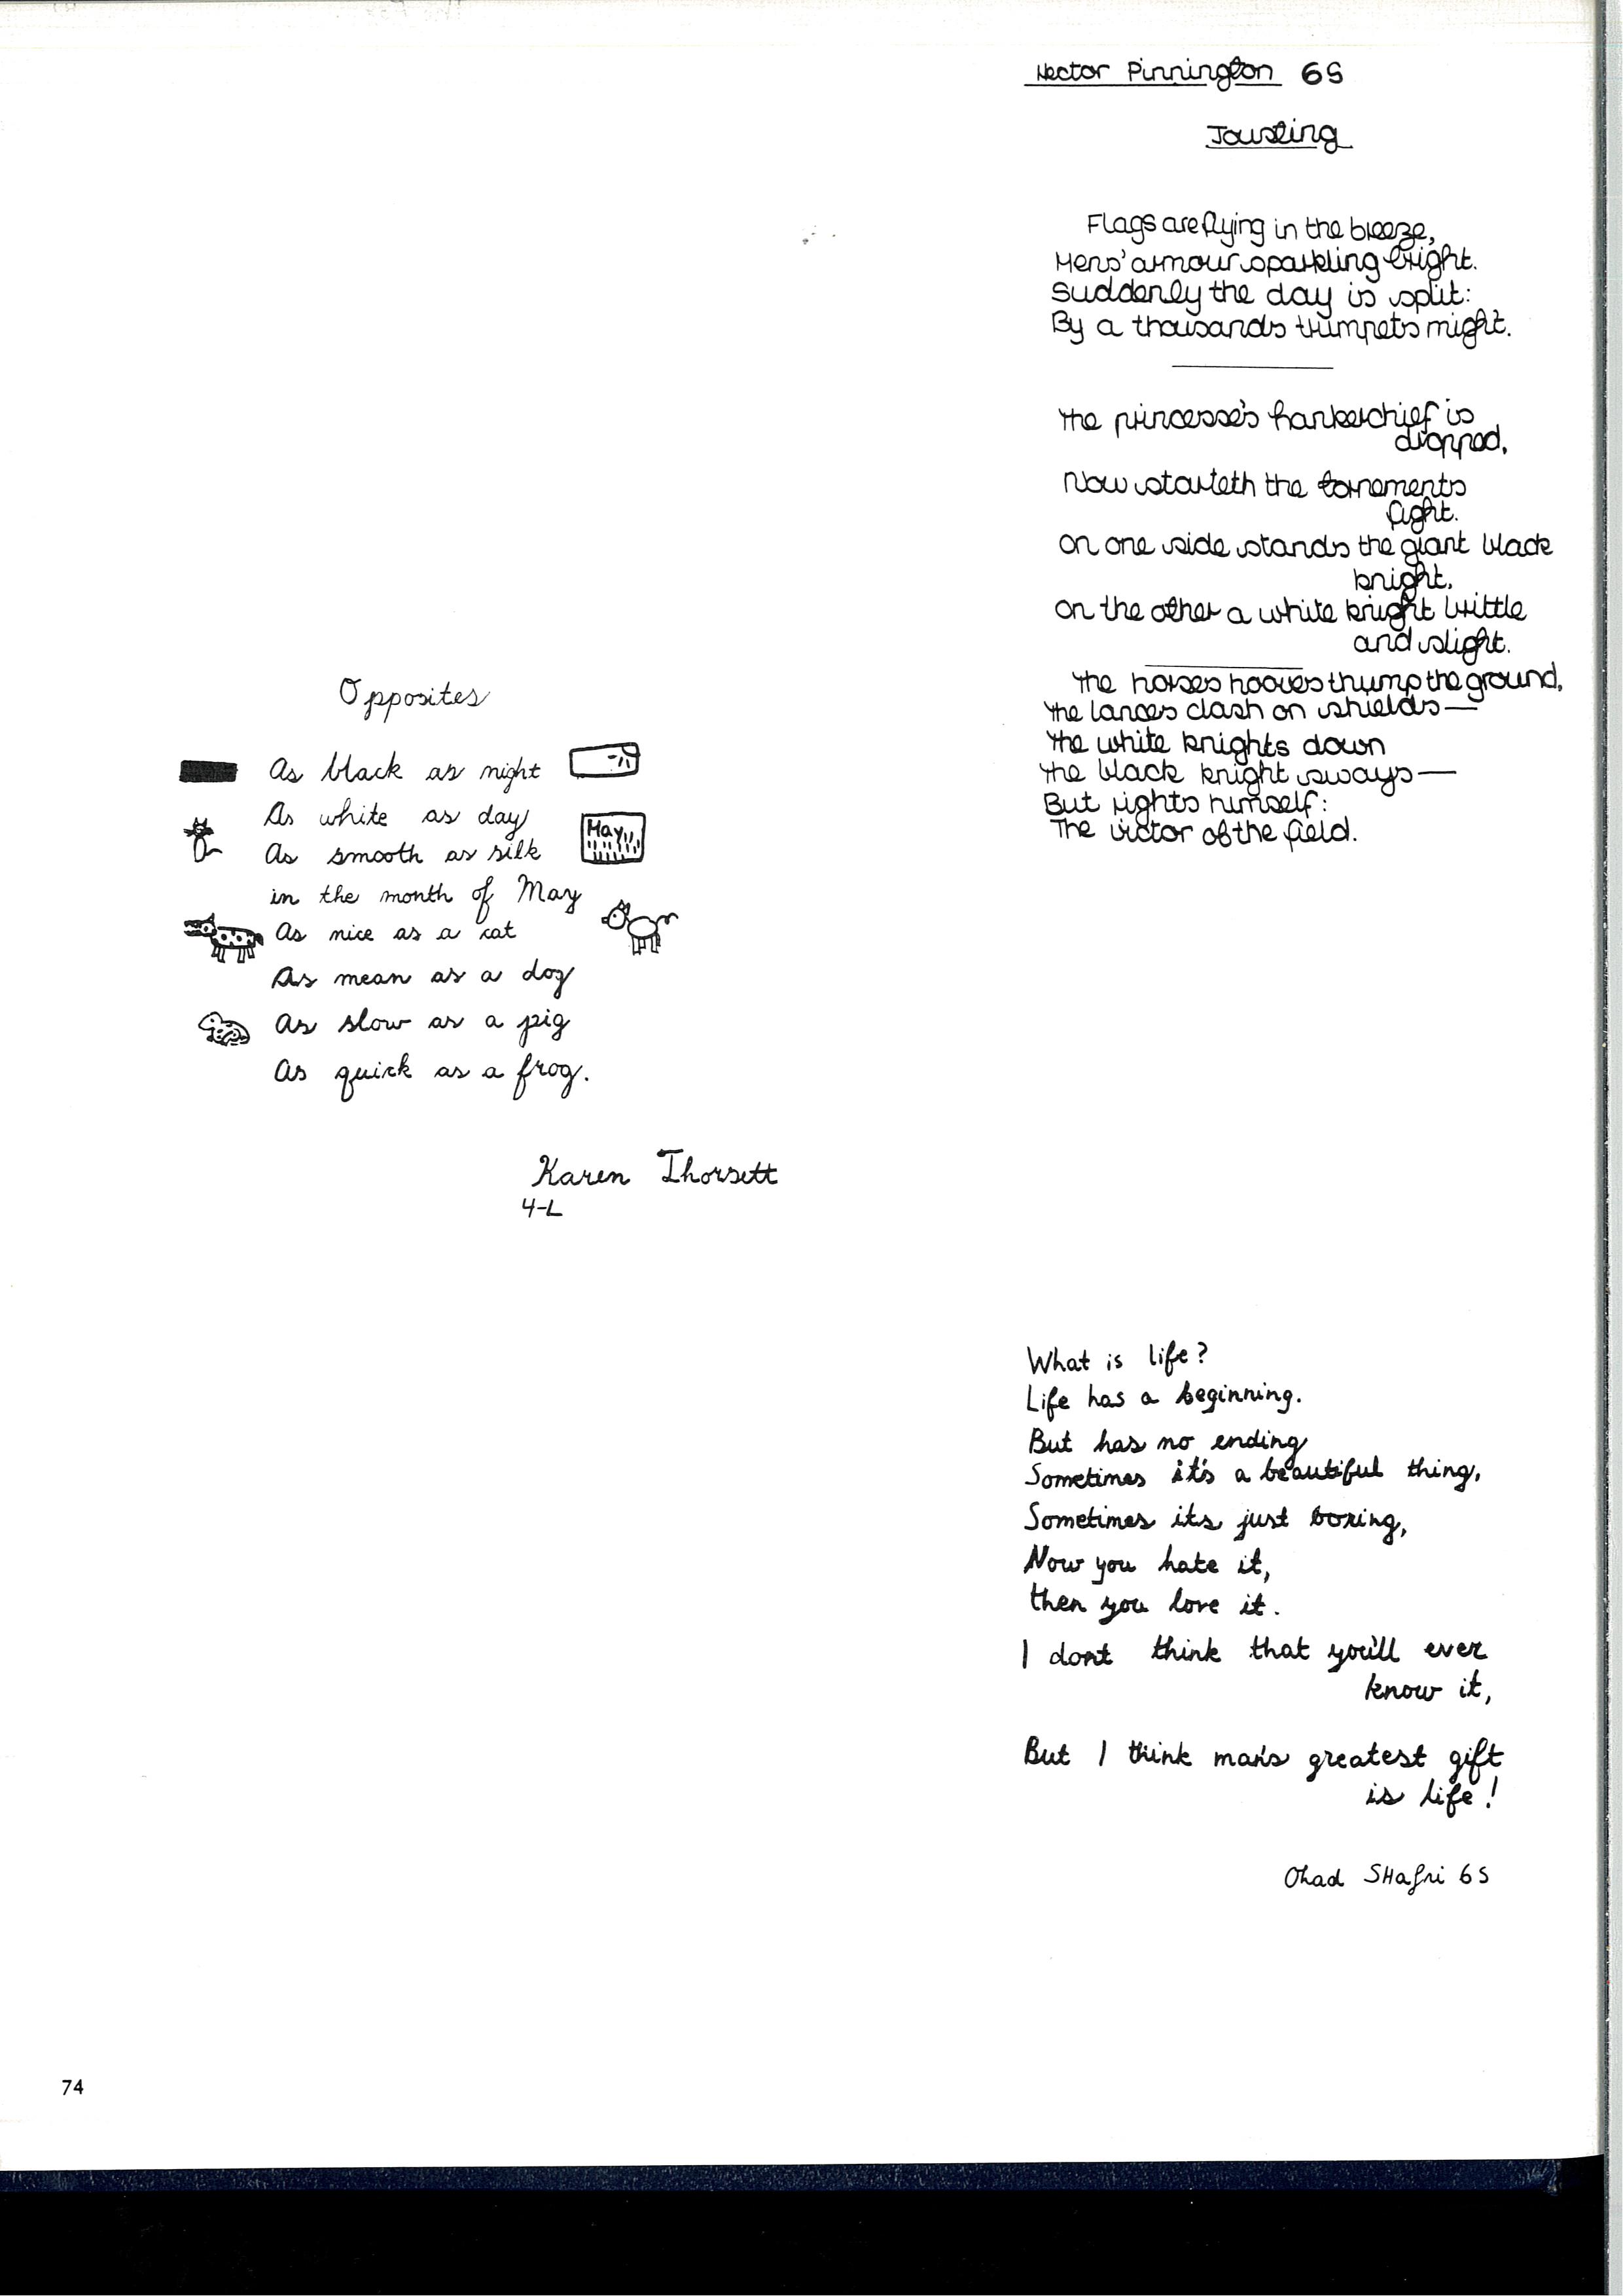 Hector Pinnington 6S
Jousting
Flags are flying in the breeze,
Mens' armour sparkling bright.
Suddenly the day is split:
By a thousands trumpets might.
The princesse's hankerchief is
dropped,
Now starteth the tornements
fight.
On one side stands the giant black
knight.
On the other a white knight brittle
and slight.
The horses hooves thump the ground,
The lances clash on shields—
The white knights down
The black knight sways—
But rights himself:
The victor of the field.
Opposites
As black as night
As white as day
As smooth as silk
May
in the month of May
As nice as a cat
As mean as a dog
As slow as a pig
As quick as a frog.
Karen Thorsett
4-L
What is life?
Life has a beginning.
But has no ending
Sometimes it's a beautiful thing,
Sometimes its just boring,
Now you hate it,
then you love it.
I dont think that you'll ever
know it,
But I think man's greatest gift
is life!
Ohad SHafri 6S
74